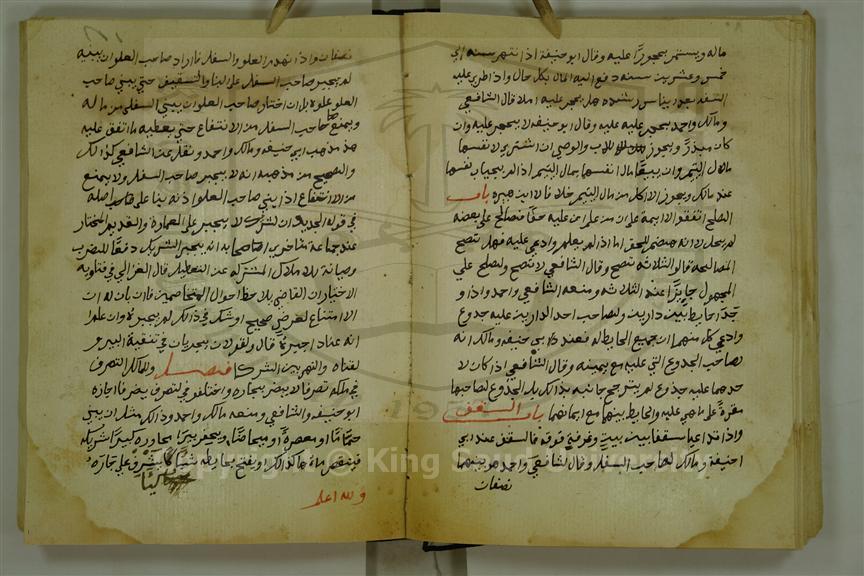 ماله ويستمر محجورًا عليه وقال ابو حنيفة اذا انتهى سنه الي
خمس وعشرين سنه دفع اليه المال بكل حال واذا طرى عليه
السفه بعد ايناس رشده هل يحجر عليه ام لا قال الشافعي
ومالك واحمد يحجر عليه وقال ابو حنيفه لا يحجر عليه وان
كان مبذرًا ويجوز للاب والوصي ان اشترى لانفسهما
مال اليتيم وان يبيعا مال انفسهما بمال اليتيم اذا لم يحابيا انفسهما
عند مالك ويجوز الاكل من مال اليتيم باب
الصلح اتفقد الايمه على ان من علم ان عليه حقا فصالح على بعضه
لم يحل لانه هضم للحق اما اذا لم يعلم وادعي عليه فهل تصح
المصالحه قال الثلاثه تصح وقال الشافعي لا تصح والصلح علي
المجهول جايز عند الثلاثه ومنعه الشافعي واحد واذا و
جدا حايط بين دارين ولصاحب احد الدارين عليه جذوع
وادعي كل منهما ان جميع الحايط له فعند ابي حنيفه ومالك انه
لصاحب الجذوع التي عليه مع يمينه وقال الشافعي اذا كان لا
حدهما عليه جذوع لم يترجح جانبه بذالك بل الجذوع لصاحبها
مقره على ما هي عليه والحايط بينهما مع ايمانهما باب السقف
واذا تداعيا سقفا بين بيت وغرفة فوقه فالسقف عند ابي
حنيفه ومالك لصاحب السفل وقال الشافعي واحد هو بينهما
نصفان
نصفان واذا انهدم العلو والسفل فاراد صاحب العلو ان يبنيه
لم يجبر صاحب السفل على البنا والتسقيف حتي يبني صاحب
العلو علوه بل ان اختار صاحب العلو ان يبني السفل من ماله
ويمنع صاحب السفل من الانتفاع حتي يعطيه ما انفق عليه
هذ مذهب ابي حنيفه ومالك واحمد ونقل عن الشافعي كذالك
والصحيح من مذهبه انه لا يجبر صاحب السفل ولا يمنع
من الانتفاع اذا بني صاحب العلو اذنه بنا على اصله
في قوله الجديد ان الشريك لا يجبر على العماره والقديم المختار
عند جماعة متاخري اصحابه انه يجبر الشريك دفعًا للضرر
وصيانة للاملاك المشتركه عن التعطيل قال الغزالي في فتاويه
الاختيار ان القاضي يلاحظ احوال المتخاصمين فان بان له ان
الامتناع لغرض صحيح او شك في ذالك لم يجبره وان علم
انه عناد اجبره قال والقولان يجريان في تنقية البير و
القناه والنهر بين الشركا فصل وللمالك التصرف
في ملكه تصرفا لا يضر بجاره واختلفو في تصرف يضر فاجازه
ابو حنيفه والشافعي ومنعه مالك واحمد وذالك مثل ان يبني
حمامًا او معصرة او مرحاضًا ويحفر بيرًا مجاوره
فينقص ماءها كذالك او يفتح بحايطه يشرف على جاره
والله اعلم